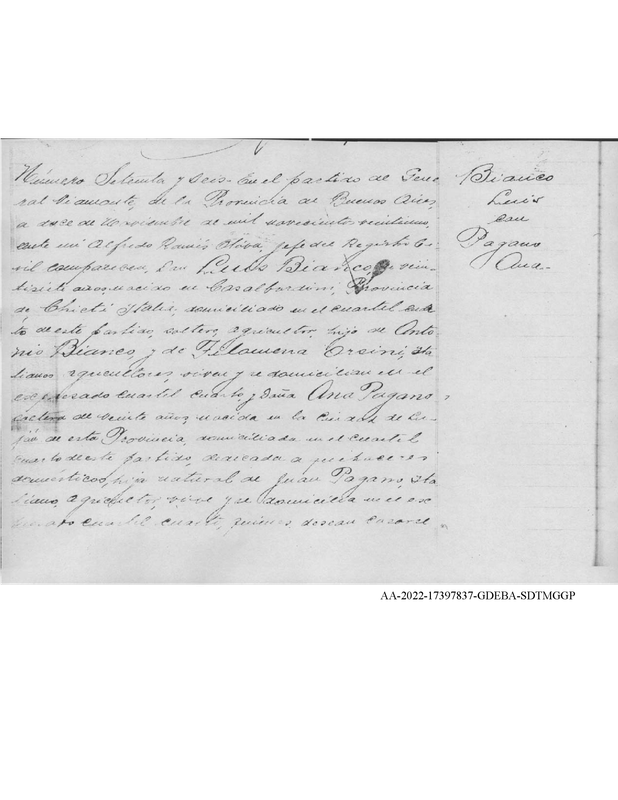 Número Setenta y seis. En el partido de Gene
ral Viamonte, de la Provincia de Buenos Aires,
a doce de Noviembre de mil novecientos veintiuno,
ante mi Alfredo Ramis Oliva, jefe del Registro Ci
vil comparecen, Don Luis Bianco de vein
tisiete años, nacido en Casalbordino, Provincia
de Chieti Italia, domiciliado en el cuartel cuar
to de este partido, soltero, agricultor, hijo de Anto
nio Bianco y de Filomena Orsini, ita
lianos agricultores, viven y se domicilian en el
expresado cuartel cuarto, y Doña Ana Pagano
soltera de veinte años, nacida en la Ciudad de Lu
ján de esta Provincia, domiciliada en el cuartel
cuarto de este partido, dedicada a quehaceres
domésticos, hija natural de Juan Pagano, ita
liano, agricultor, vive y se domicilia en el ex
presado cuartel cuarto, quienes desean casarse
Bianco
Luis
con
Pagano
Ana.
AA-2022-17397837-GDEBA-SDTMGGP